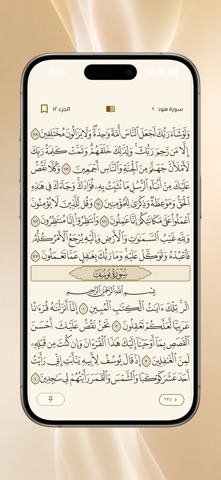 ٩:٤١
سورة هود
الجزء ١٢
وَلَوْ شَاءَ رَبُّكَ لَجَعَلَ النَّاسَ أُمَّةً وَاحِدَةً وَلَا يَزَالُونَ مُخْتَلِفِينَ ١١٨
إِلَّا مَن رَّحِمَ رَبُّكَ وَلِذَٰلِكَ خَلَقَهُمْ وَتَمَّتْ كَلِمَةُ رَبِّكَ
لَأَمْلَأَنَّ جَهَنَّمَ مِنَ الْجِنَّةِ وَالنَّاسِ أَجْمَعِينَ ١١٩ وَكُلًّا نَّقُصُّ
عَلَيْكَ مِنْ أَنبَاءِ الرُّسُلِ مَا نُثَبِّتُ بِهِ فُؤَادَكَ وَجَاءَكَ فِي هَٰذِهِ
الْحَقُّ وَمَوْعِظَةٌ وَذِكْرَىٰ لِلْمُؤْمِنِينَ ١٢٠ وَقُل لِّلَّذِينَ لَا يُؤْمِنُونَ
اعْمَلُوا عَلَىٰ مَكَانَتِكُمْ إِنَّا عَامِلُونَ ١٢١ وَانتَظِرُوا إِنَّا مُنتَظِرُونَ ١٢٢
وَلِلَّهِ غَيْبُ السَّمَاوَاتِ وَالْأَرْضِ وَإِلَيْهِ يُرْجَعُ الْأَمْرُ كُلُّهُ
فَاعْبُدْهُ وَتَوَكَّلْ عَلَيْهِ وَمَا رَبُّكَ بِغَافِلٍ عَمَّا تَعْمَلُونَ ١٢٣
سُورَةُ يُوسُفَ
بِسْمِ اللَّهِ الرَّحْمَٰنِ الرَّحِيمِ
الر تِلْكَ آيَاتُ الْكِتَابِ الْمُبِينِ ١ إِنَّا أَنزَلْنَاهُ قُرْآنًا
عَرَبِيًّا لَّعَلَّكُمْ تَعْقِلُونَ ٢ نَحْنُ نَقُصُّ عَلَيْكَ أَحْسَنَ
الْقَصَصِ بِمَا أَوْحَيْنَا إِلَيْكَ هَٰذَا الْقُرْآنَ وَإِن كُنتَ مِن قَبْلِهِ
لَمِنَ الْغَافِلِينَ ٣ إِذْ قَالَ يُوسُفُ لِأَبِيهِ يَا أَبَتِ إِنِّي رَأَيْتُ
أَحَدَ عَشَرَ كَوْكَبًا وَالشَّمْسَ وَالْقَمَرَ رَأَيْتُهُمْ لِي سَاجِدِينَ ٤
٢٣٥